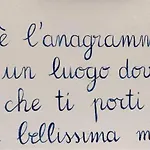 è l'anagramm
un luogo dov
che ti porti
bellissima m